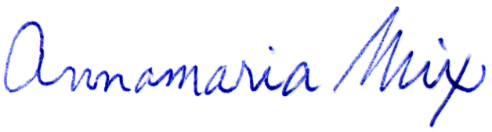 Annamaria Mix